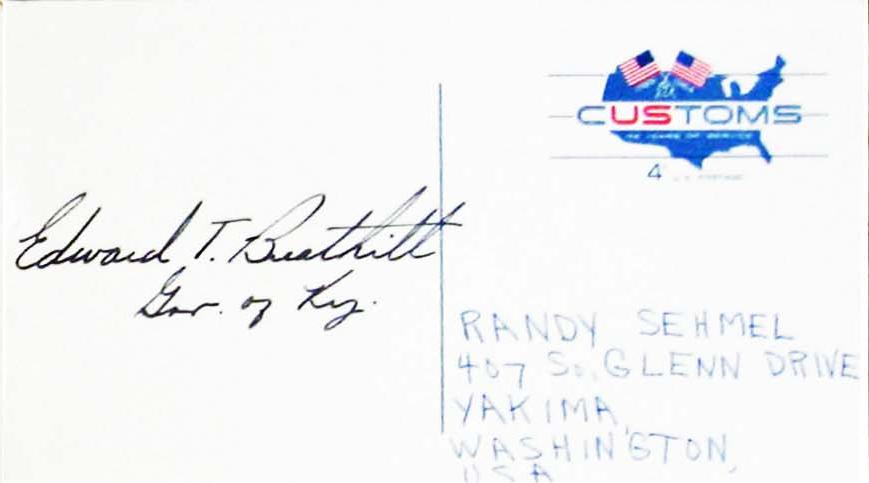 CUSTOMS
YEARS OF SERVICE
4¢ U.S. POSTAGE
Edward T. Breathitt
Gov. of Ky.
RANDY SEHMEL
407 So. GLENN DRIVE
YAKIMA,
WASHINGTON,
USA